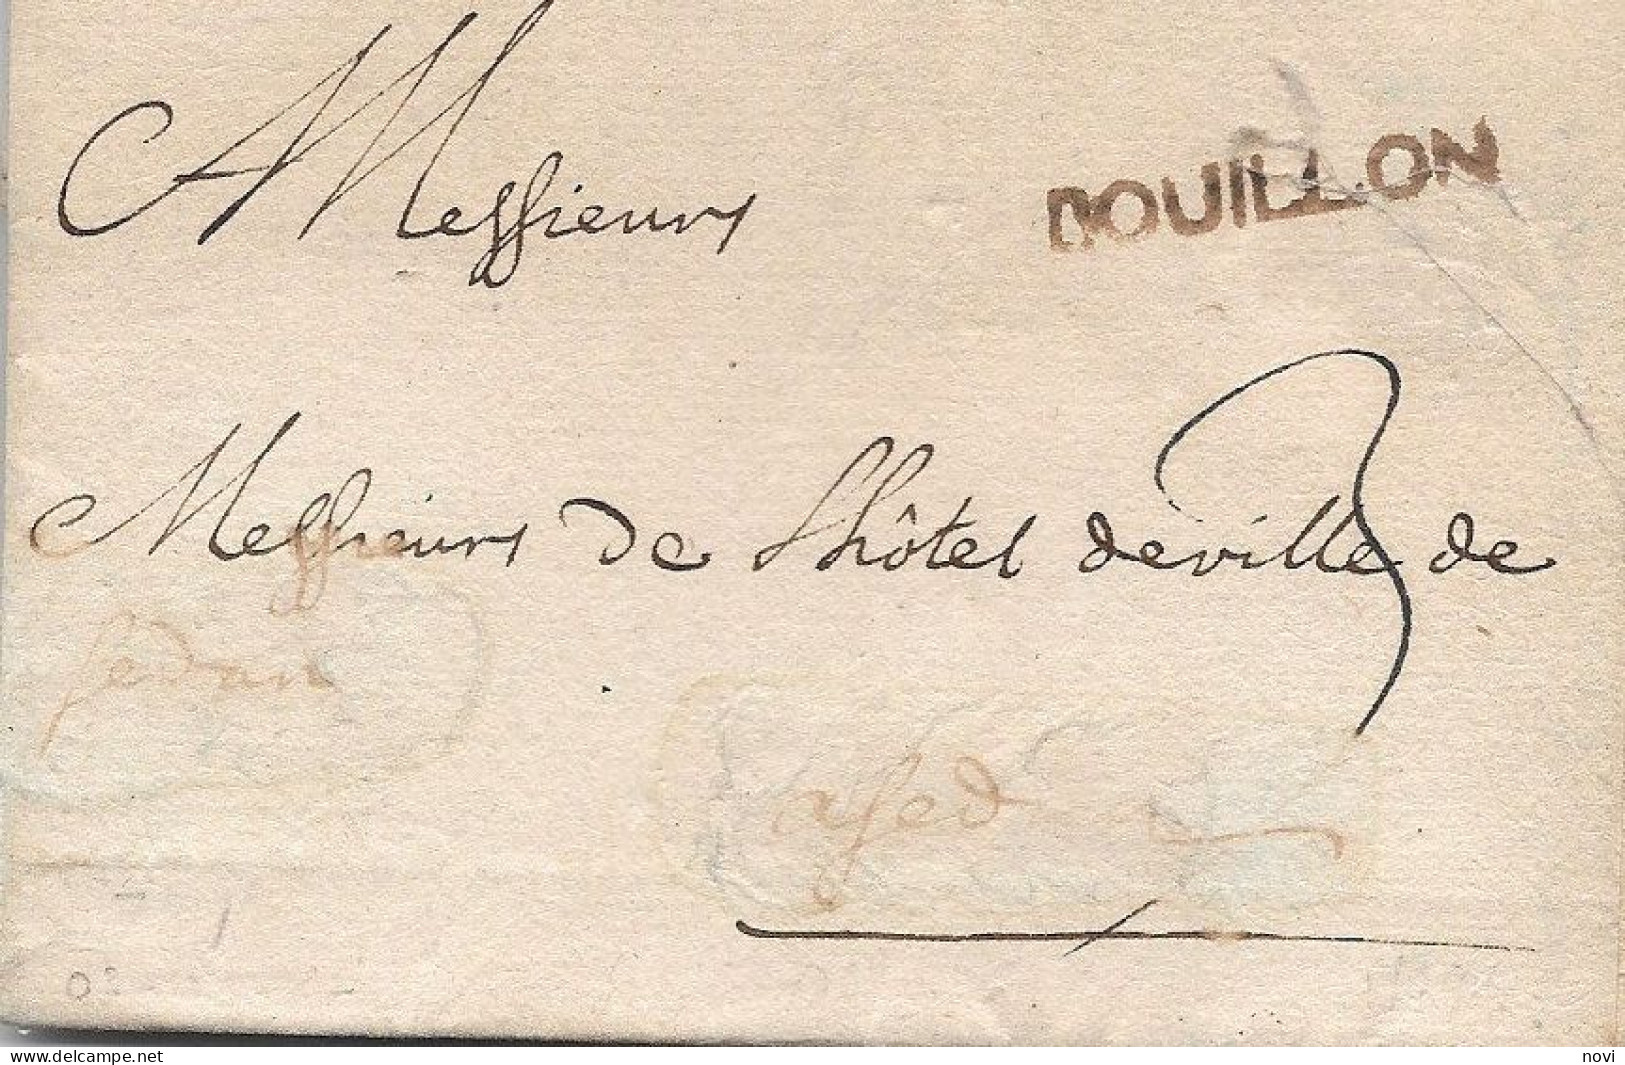 A Messieurs
BOUILLON
Messieurs de l'hôtel de ville de
Sedan
3
a Sed
03
delcampe.net
novi